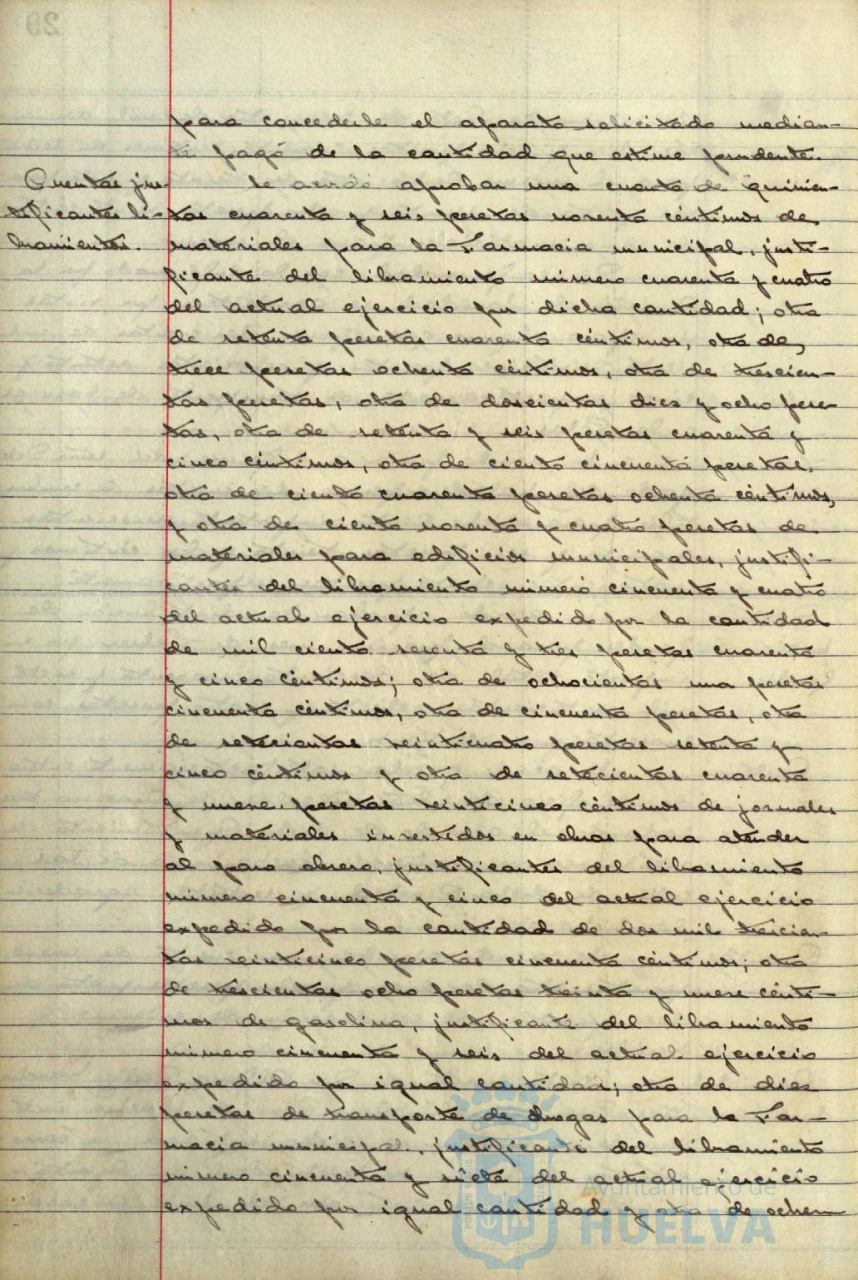 para concederle el aparato solicitado median-
te pago de la cantidad que estime prudente.
Cuentas jus-
tificantes li-
bramientos.
Se acordó aprobar una cuenta de quinien-
tas cuarenta y seis pesetas noventa céntimos de
materiales para la Farmacia municipal, justi-
ficante del libramiento número cuarenta y cuatro
del actual ejercicio por dicha cantidad; otra
de setenta pesetas cuarenta céntimos, otra de,
trece pesetas ochenta céntimos, otra de trescien-
tas pesetas, otra de doscientas diez y ocho pese-
tas, otra de setenta y seis pesetas cuarenta y
cinco céntimos, otra de ciento cincuenta pesetas,
otra de ciento cuarenta pesetas ochenta céntimos,
y otra de ciento noventa y cuatro pesetas de
materiales para edificios municipales, justifi-
cantes del libramiento número cincuenta y cuatro
del actual ejercicio expedido por la cantidad
de mil ciento sesenta y tres pesetas cuarenta
y cinco céntimos; otra de ochocientas una pesetas
cincuenta céntimos, otra de cincuenta pesetas, otra
de setecientas veinticuatro pesetas setenta y
cinco céntimos y otra de setecientas cuarenta
y nueve pesetas veinticinco céntimos de jornales
y materiales invertidos en obras para atender
al paro obrero, justificantes del libramiento
número cincuenta y cinco del actual ejercicio
expedido por la cantidad de dos mil trescien-
tas veinticinco pesetas cincuenta céntimos; otra
de trescientas ocho pesetas treinta y nueve cénti-
mos de gasolina, justificante del libramiento
número cincuenta y seis del actual ejercicio
expedido por igual cantidad; otra de diez
pesetas de transporte de drogas para la Far-
macia municipal, justificante del libramiento
número cincuenta y siete del actual ejercicio
expedido por igual cantidad y otra de ochen-
Ayuntamiento de
HUELVA